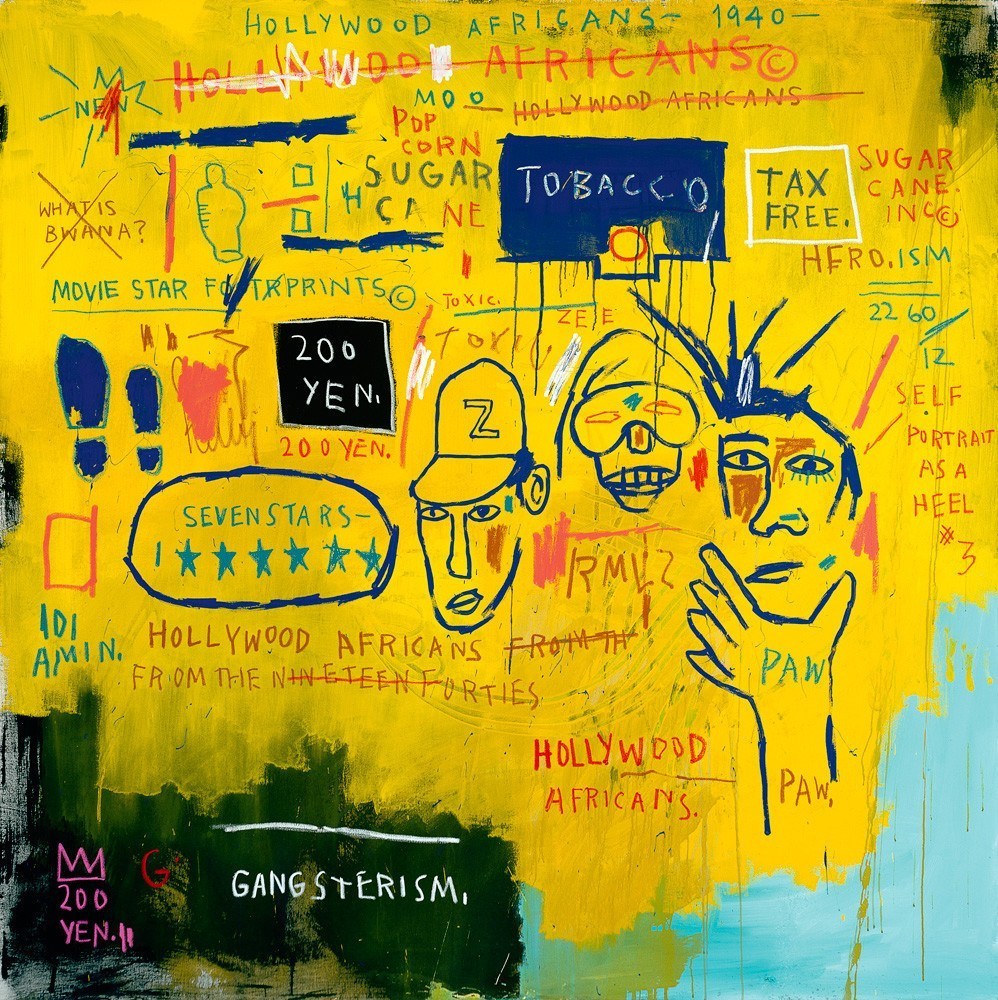 HOLLYWOOD AFRICANS- 1940-
HOLLYWOOD AFRICANS©
NEW
MOO
HOLLYWOOD AFRICANS
POP
CORN
SUGAR
CANE
TOBACCO
TAX
FREE.
SUGAR
CANE.
INC©
HERO.ISM
WHAT IS
BWANA?
MOVIE STAR FOOTRPRINTS©
TOXIC.
TOXIC
200
YEN.
200 YEN.
Z
22 60
12
SELF
PORTRAIT
AS A
HEEL
#3
SEVEN STARS-
1
RMLZ
IDI
AMIN.
HOLLYWOOD AFRICANS FROM TH
FROM THE NINETEEN FORTIES
PAW
PAW.
HOLLYWOOD
AFRICANS.
GANGSTERISM.
G
200
YEN.